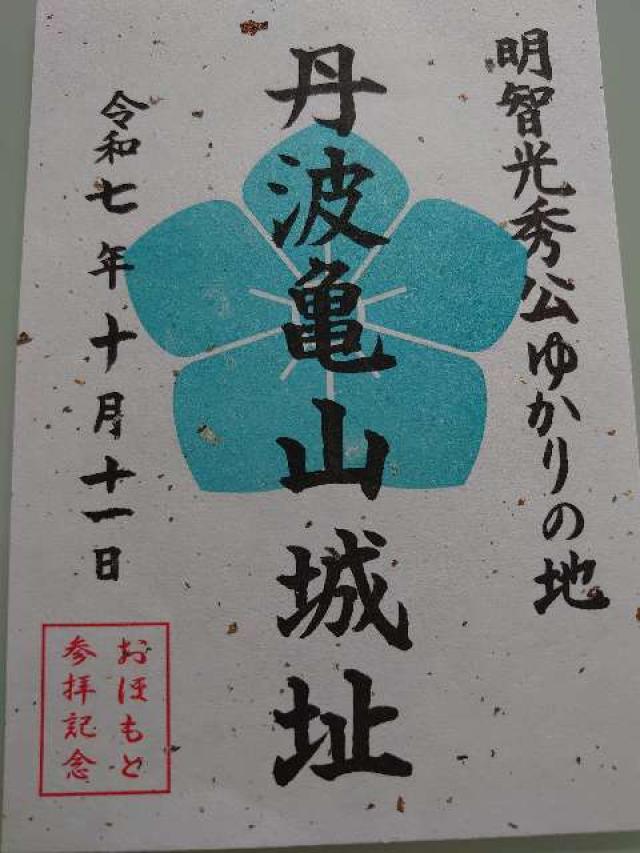 明智光秀公ゆかりの地
丹波亀山城址
令和七年十月十一日
おほもと
参拝記念